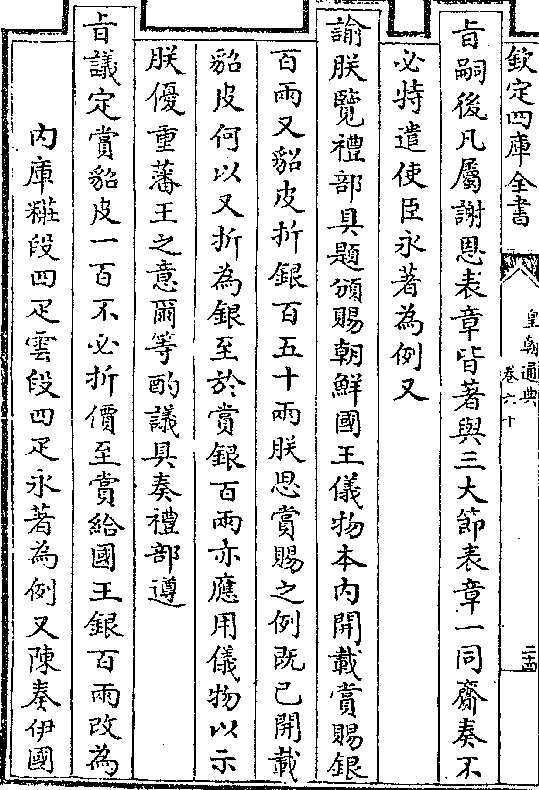 欽定四庫全書
皇朝通典
卷六十
二十四
旨嗣後凡屬謝恩表章皆著與三大節表章一同齎奏不
必特遣使臣永著為例又
諭朕覽禮部具題頒賜朝鮮國王儀物本内開載賞賜銀
百兩又貂皮折銀百五十兩朕思賞賜之例既已開載
貂皮何以又折為銀至於賞銀百兩亦應用儀物以示
朕優重藩王之意爾等酌議具奏禮部遵
旨議定賞貂皮一百不必折價至賞給國王銀百兩改為
内庫糚段四疋雲段四疋永著為例又陳奏伊國